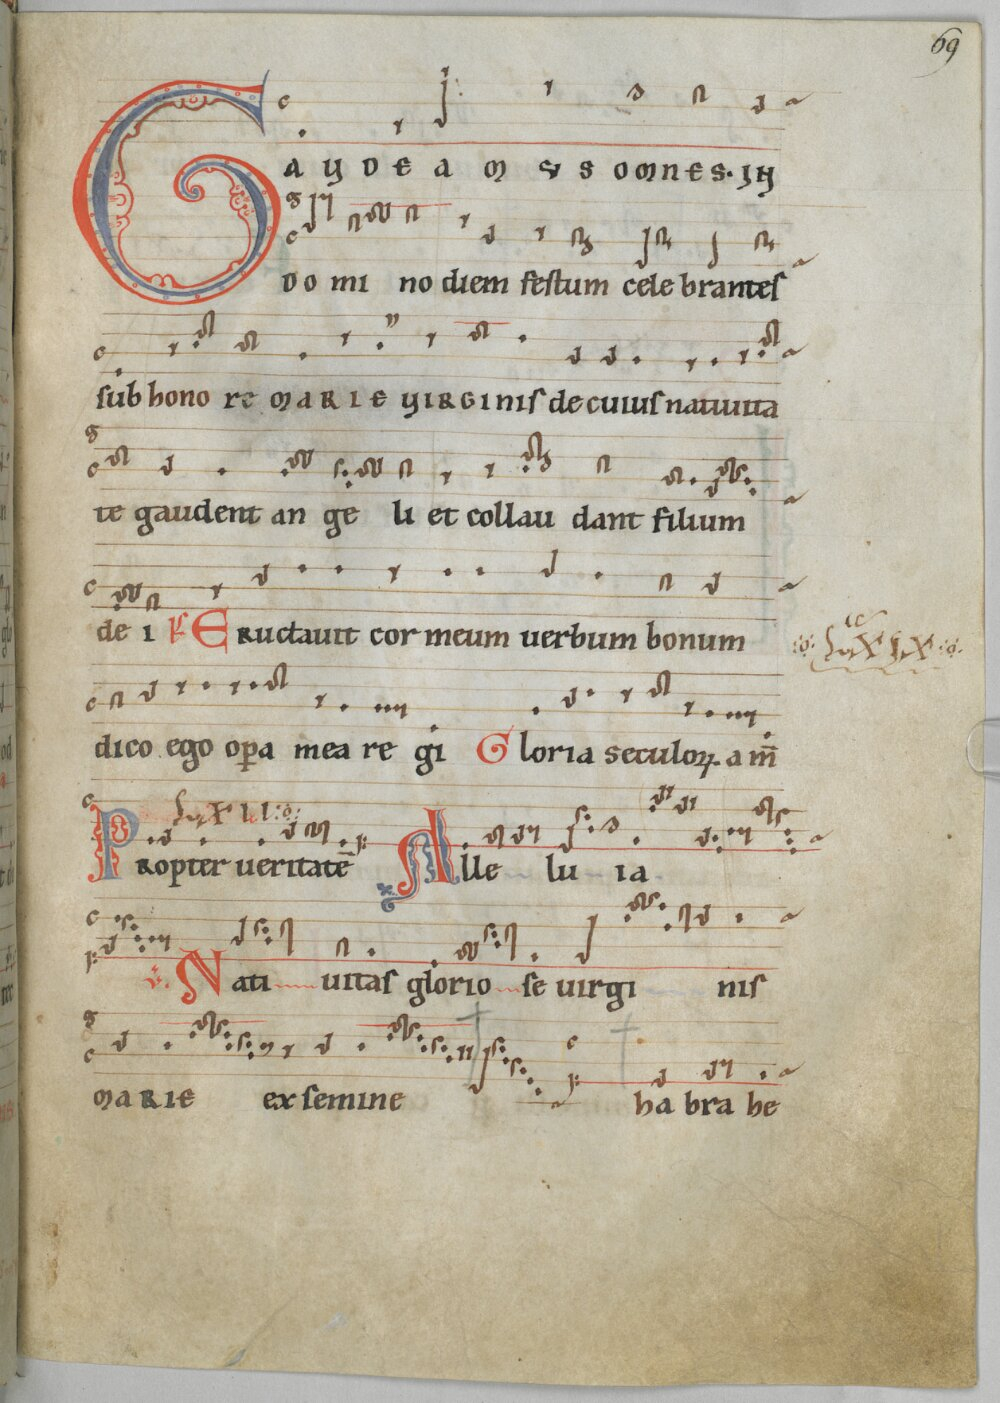 69
GAUDEAMUS OMNES. IN
Domino diem festum celebrantes
sub honore MARIE VIRGINIS de cuius natiuita
te gaudent angeli et collaudant filium
dei Eructauit cor meum uerbum bonum
dico ego opa mea regi Gloria seculoꝝ am̄
Propter ueritatē Alleluia
Natiuitas gloriose uirginis
MARIE ex semine habrahe